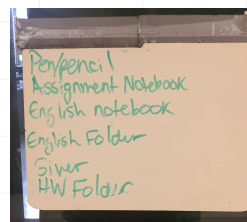 Pen/pencil
Assignment Notebook
English notebook
English Folder
Giver
HW Folder